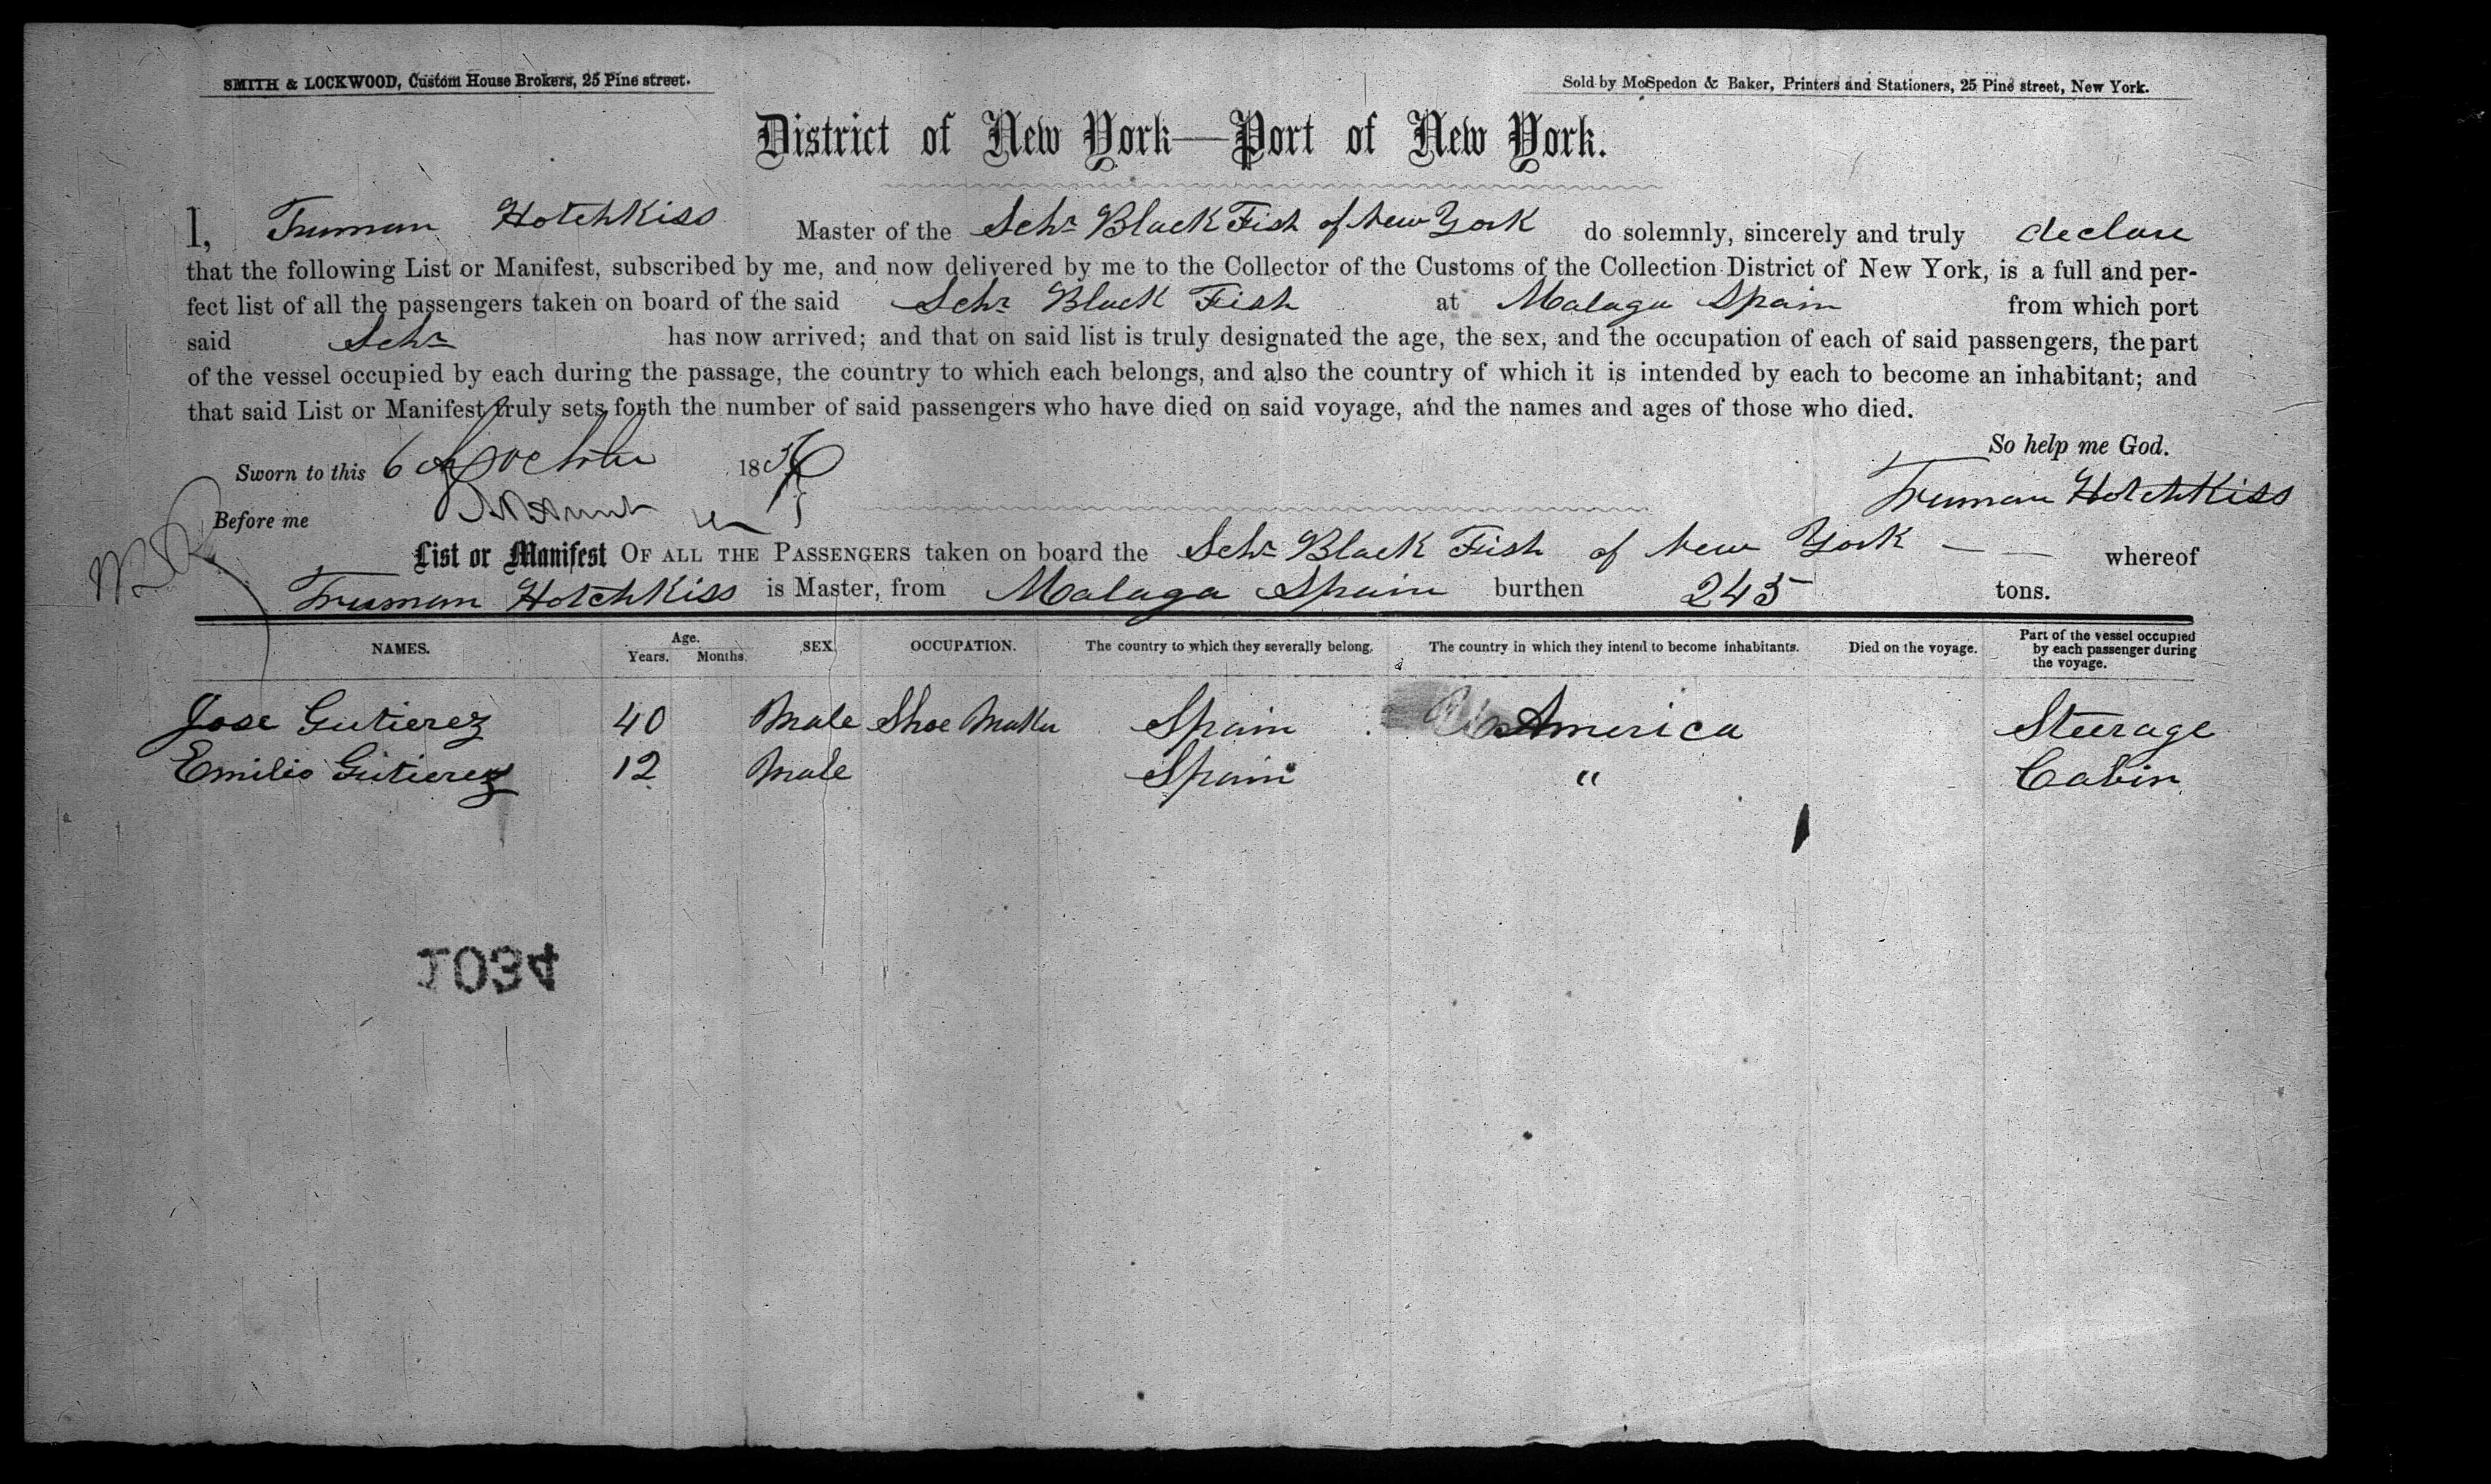 SMITH & LOCKWOOD, Custom House Brokers, 25 Pine street.
Sold by McSpedon & Baker, Printers and Stationers, 25 Pine street, New York.
District of New York—Port of New York.
I, Truman HotchKiss Master of the Schr Black Fish of New York do solemnly, sincerely and truly declare
that the following List or Manifest, subscribed by me, and now delivered by me to the Collector of the Customs of the Collection District of New York, is a full and per-
fect list of all the passengers taken on board of the said Schr Black Fish at Malaga Spain from which port
said Schr has now arrived; and that on said list is truly designated the age, the sex, and the occupation of each of said passengers, the part
of the vessel occupied by each during the passage, the country to which each belongs, and also the country of which it is intended by each to become an inhabitant; and
that said List or Manifest truly sets forth the number of said passengers who have died on said voyage, and the names and ages of those who died.
So help me God.
Sworn to this 6 October 18
Truman HotchKiss
Before me
List or Manifest OF ALL THE PASSENGERS taken on board the Schr Black Fish of New York — — whereof
Truman HotchKiss is Master, from Malaga Spain burthen 245 tons.
NAMES. Age. Years. Months. SEX. OCCUPATION. The country to which they severally belong. The country in which they intend to become inhabitants. Died on the voyage. Part of the vessel occupied by each passenger during the voyage.
Jose Gutierez 40 Male Shoe Maker Spain America Steerage
Emilio Gutierez 12 Male Spain " Cabin
1034